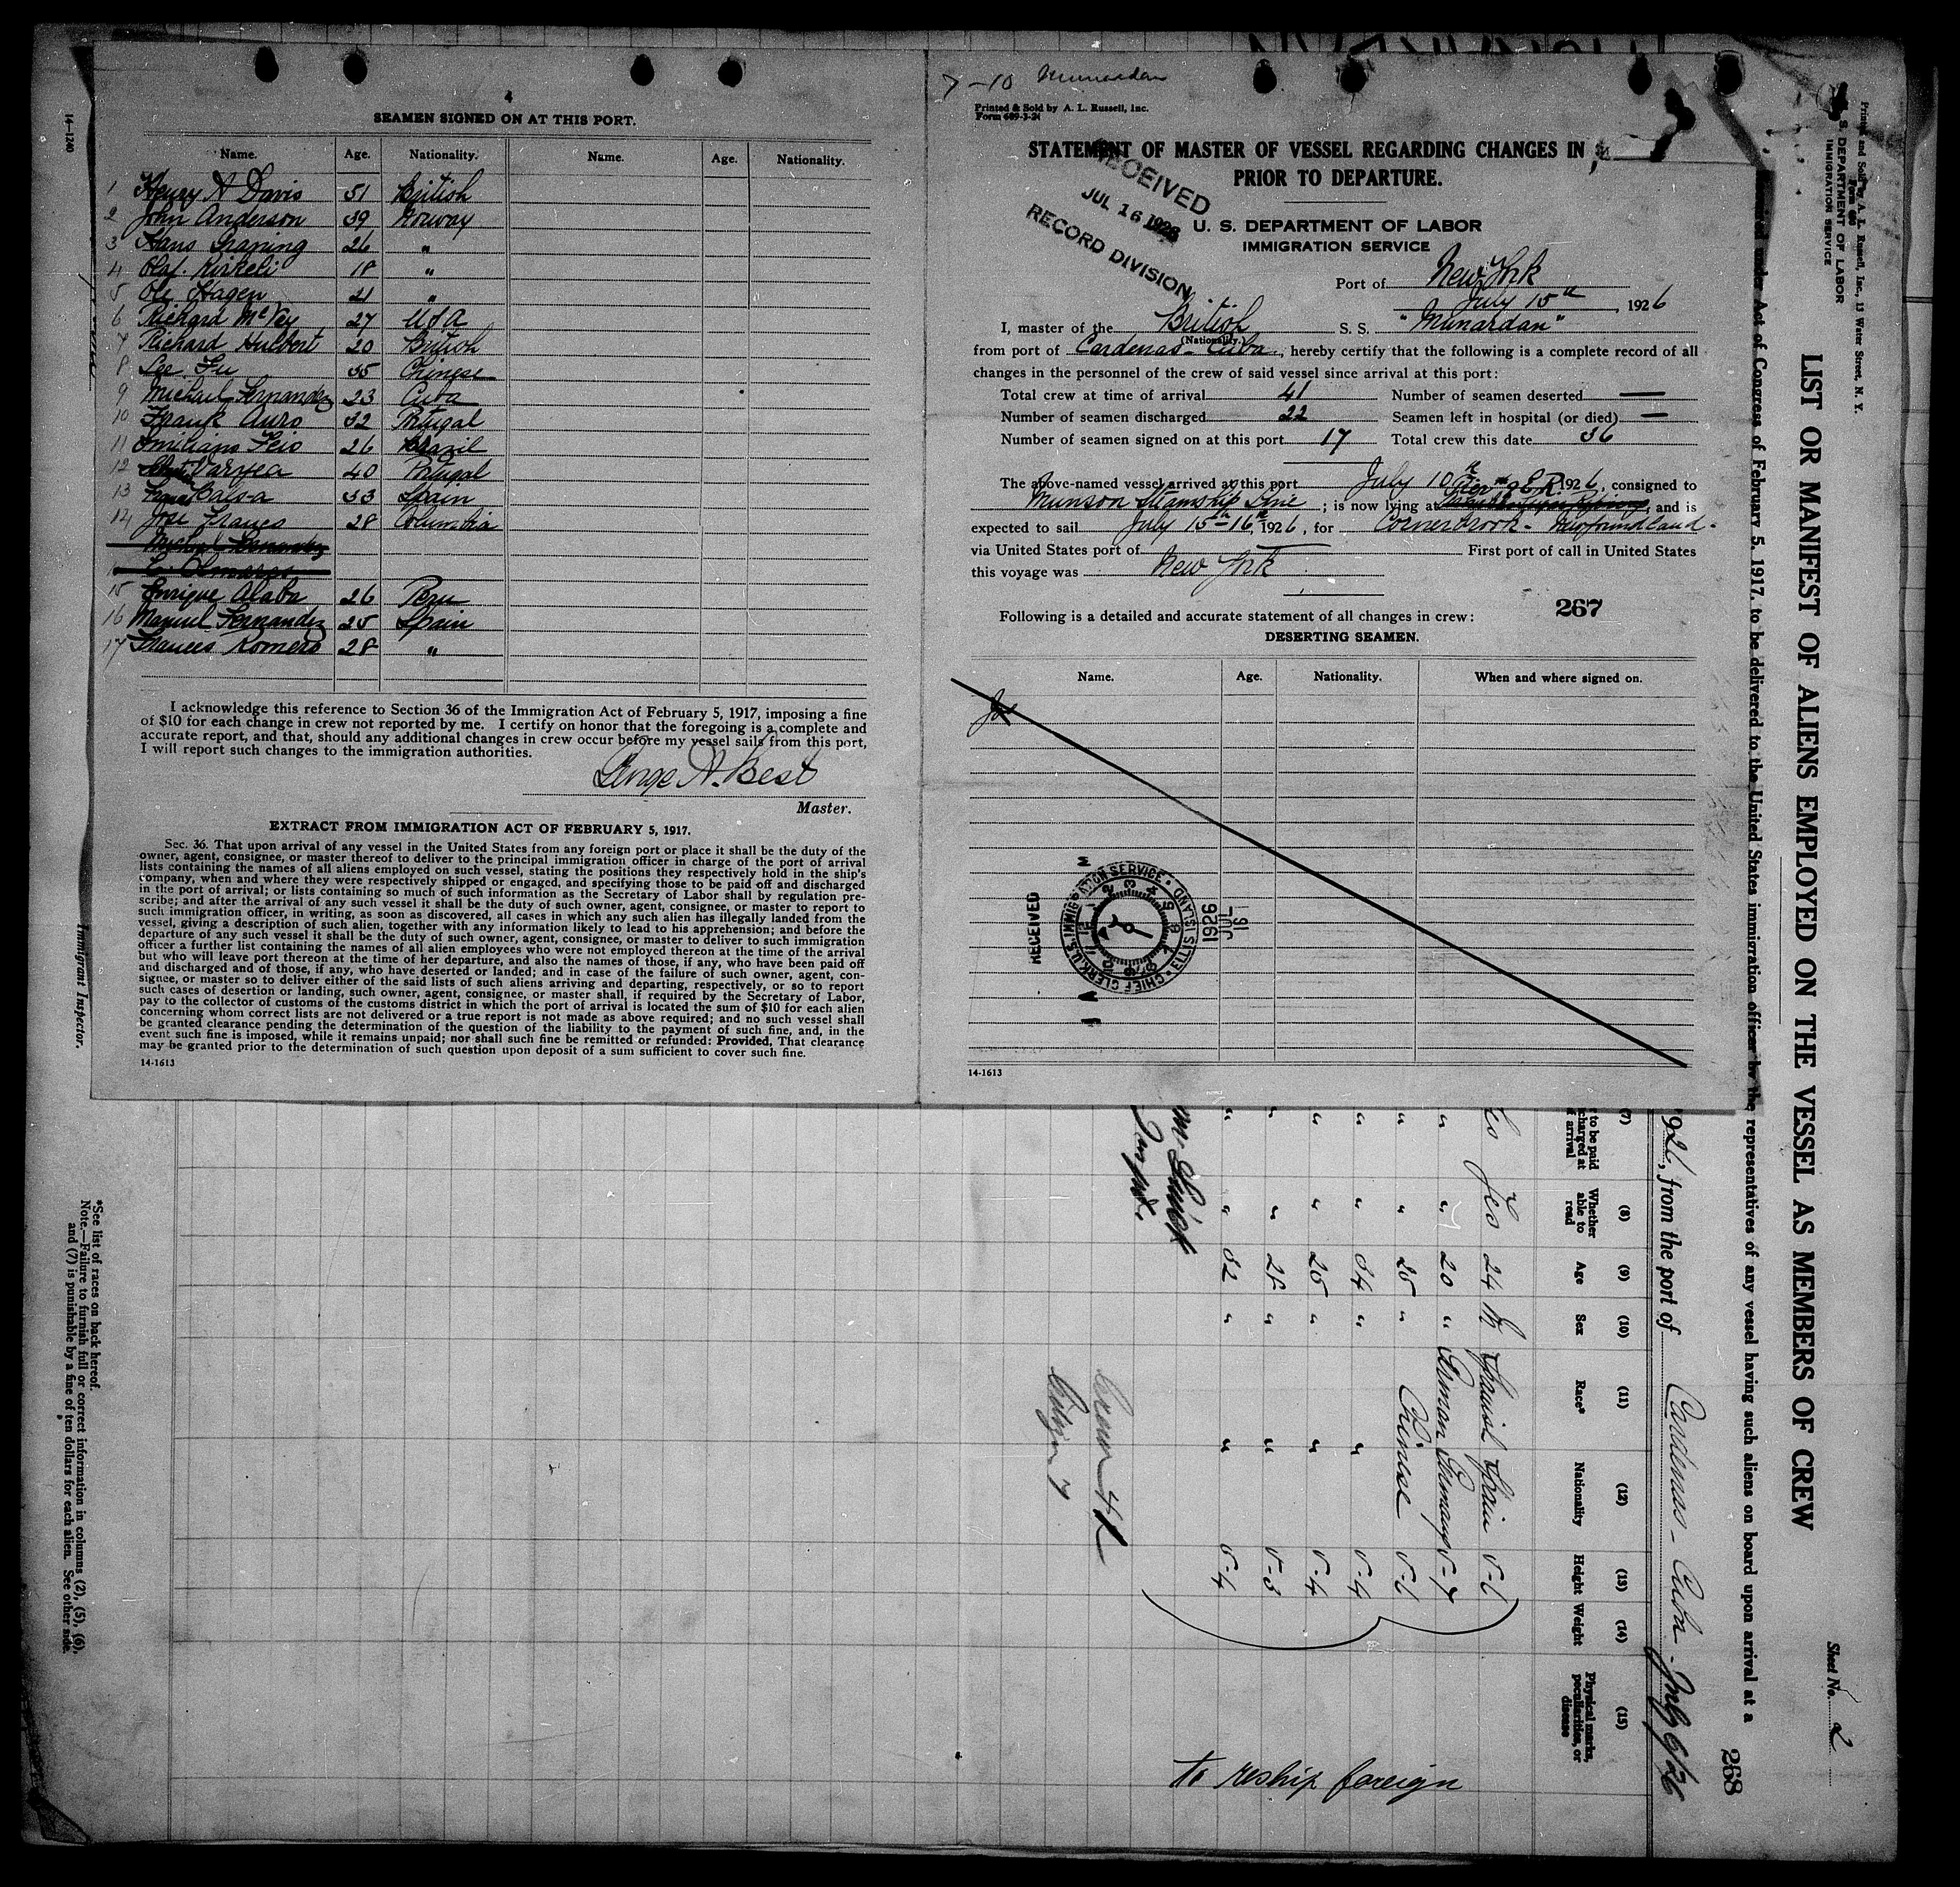 4
SEAMEN SIGNED ON AT THIS PORT.
Name. Age. Nationality. Name. Age. Nationality.
1 Henry A Davis 51 British
2 John Anderson 39 Norway
3 Hans 26 "
4 Olaf. Kirkeli 18 "
5 Ole Hagen 21 "
6 Richard McVey 27 USA
7 Richard Hulbert 20 British
8 Lee Fu 35 Chinese
9 Michael Fernandez 23 Cuba
10 Frank Auro 32 Portugal
11 Emiliano Feis 26 Brazil
12 Varyea 40 Portugal
13 Balsa 33 Spain
14 Jose Franes 28 Columbia
Michael Fernandez
15 Enrique Alaba 26 Peru
16 Manuel Fernandez 25 Spain
17 Frances Romero 28 "
I acknowledge this reference to Section 36 of the Immigration Act of February 5, 1917, imposing a fine
of $10 for each change in crew not reported by me. I certify on honor that the foregoing is a complete and
accurate report, and that, should any additional changes in crew occur before my vessel sails from this port,
I will report such changes to the immigration authorities.
George A. Best
Master.
EXTRACT FROM IMMIGRATION ACT OF FEBRUARY 5, 1917.
Sec. 36. That upon arrival of any vessel in the United States from any foreign port or place it shall be the duty of the
owner, agent, consignee, or master thereof to deliver to the principal immigration officer in charge of the port of arrival
lists containing the names of all aliens employed on such vessel, stating the positions they respectively hold in the ship's
company, when and where they were respectively shipped or engaged, and specifying those to be paid off and discharged
in the port of arrival; or lists containing so much of such information as the Secretary of Labor shall by regulation pre-
scribe; and after the arrival of any such vessel it shall be the duty of such owner, agent, consignee, or master to report to
such immigration officer, in writing, as soon as discovered, all cases in which any such alien has illegally landed from the
vessel, giving a description of such alien, together with any information likely to lead to his apprehension; and before the
departure of any such vessel it shall be the duty of such owner, agent, consignee, or master to deliver to such immigration
officer a further list containing the names of all alien employees who were not employed thereon at the time of the arrival
but who will leave port thereon at the time of her departure, and also the names of those, if any, who have been paid off
and discharged and of those, if any, who have deserted or landed; and in case of the failure of such owner, agent, con-
signee, or master so to deliver either of the said lists of such aliens arriving and departing, respectively, or so to report
such cases of desertion or landing, such owner, agent, consignee, or master shall, if required by the Secretary of Labor,
pay to the collector of customs of the customs district in which the port of arrival is located the sum of $10 for each alien
concerning whom correct lists are not delivered or a true report is not made as above required; and no such vessel shall
be granted clearance pending the determination of the question of the liability to the payment of such fine, and, in the
event such fine is imposed, while it remains unpaid; nor shall such fine be remitted or refunded: Provided, That clearance
may be granted prior to the determination of such question upon deposit of a sum sufficient to cover such fine.
14-1613
7-10 Munardan
Printed & Sold by A. L. Russell, Inc.
Form 689-3-24
STATEMENT OF MASTER OF VESSEL REGARDING CHANGES IN
PRIOR TO DEPARTURE.
RECEIVED
JUL 16 1926
RECORD DIVISION
U. S. DEPARTMENT OF LABOR
IMMIGRATION SERVICE
Port of New York
July 15th, 1926
I, master of the British S. S. "Munardan"
(Nationality.)
from port of Cardenas - Cuba, hereby certify that the following is a complete record of all
changes in the personnel of the crew of said vessel since arrival at this port:
Total crew at time of arrival 41 Number of seamen deserted —
Number of seamen discharged 22 Seamen left in hospital (or died) —
Number of seamen signed on at this port 17 Total crew this date 36
The above-named vessel arrived at this port July 10th 1926, consigned to
Munson Steamship Line; is now lying at Pier 9 E.R., and is
expected to sail July 15th-16th, 1926, for Cornerbrook - Newfoundland-
via United States port of First port of call in United States
this voyage was New York
267
Following is a detailed and accurate statement of all changes in crew:
DESERTING SEAMEN.
Name. Age. Nationality. When and where signed on.
RECEIVED
CHIEF CLERK U.S. IMMIGRATION SERVICE · ELLIS ISLAND
1926
JUL
16
14-1613
Printed and Sold by A. L. Russell, Inc., 13 Water Street, N. Y.
U. S. DEPARTMENT OF LABOR
IMMIGRATION SERVICE
LIST OR MANIFEST OF ALIENS EMPLOYED ON THE VESSEL AS MEMBERS OF CREW
Sheet No. 2
under Act of Congress of February 5, 1917, to be delivered to the United States immigration officer by the representatives of any vessel having such aliens on board upon arrival at a
268
1926, from the port of Cardenas - Cuba - July 6/26
(7) (8) (9) (10) (11) (12) (13) (14) (15)
to be paid
charged at
arrival
Whether able to read
Age
Sex
Race*
Nationality
Height
Weight
Physical marks, peculiarities, or disease
Yes 24 M Spanish Spain 5-6
" " 20 " German Germany 5-7
" " 25 " Chinese 5-6
" " 34 " " 5-4
" " 25 " " 5-4
" " 28 " " 5-3
" " 32 " " 5-4
to reship foreign
Crew 41
14-1240
Immigrant Inspector.
*See list of races on back hereof.
Note.—Failure to furnish full or correct information in columns (2), (5), (6),
and (7) is punishable by a fine of ten dollars for each alien. See other side.